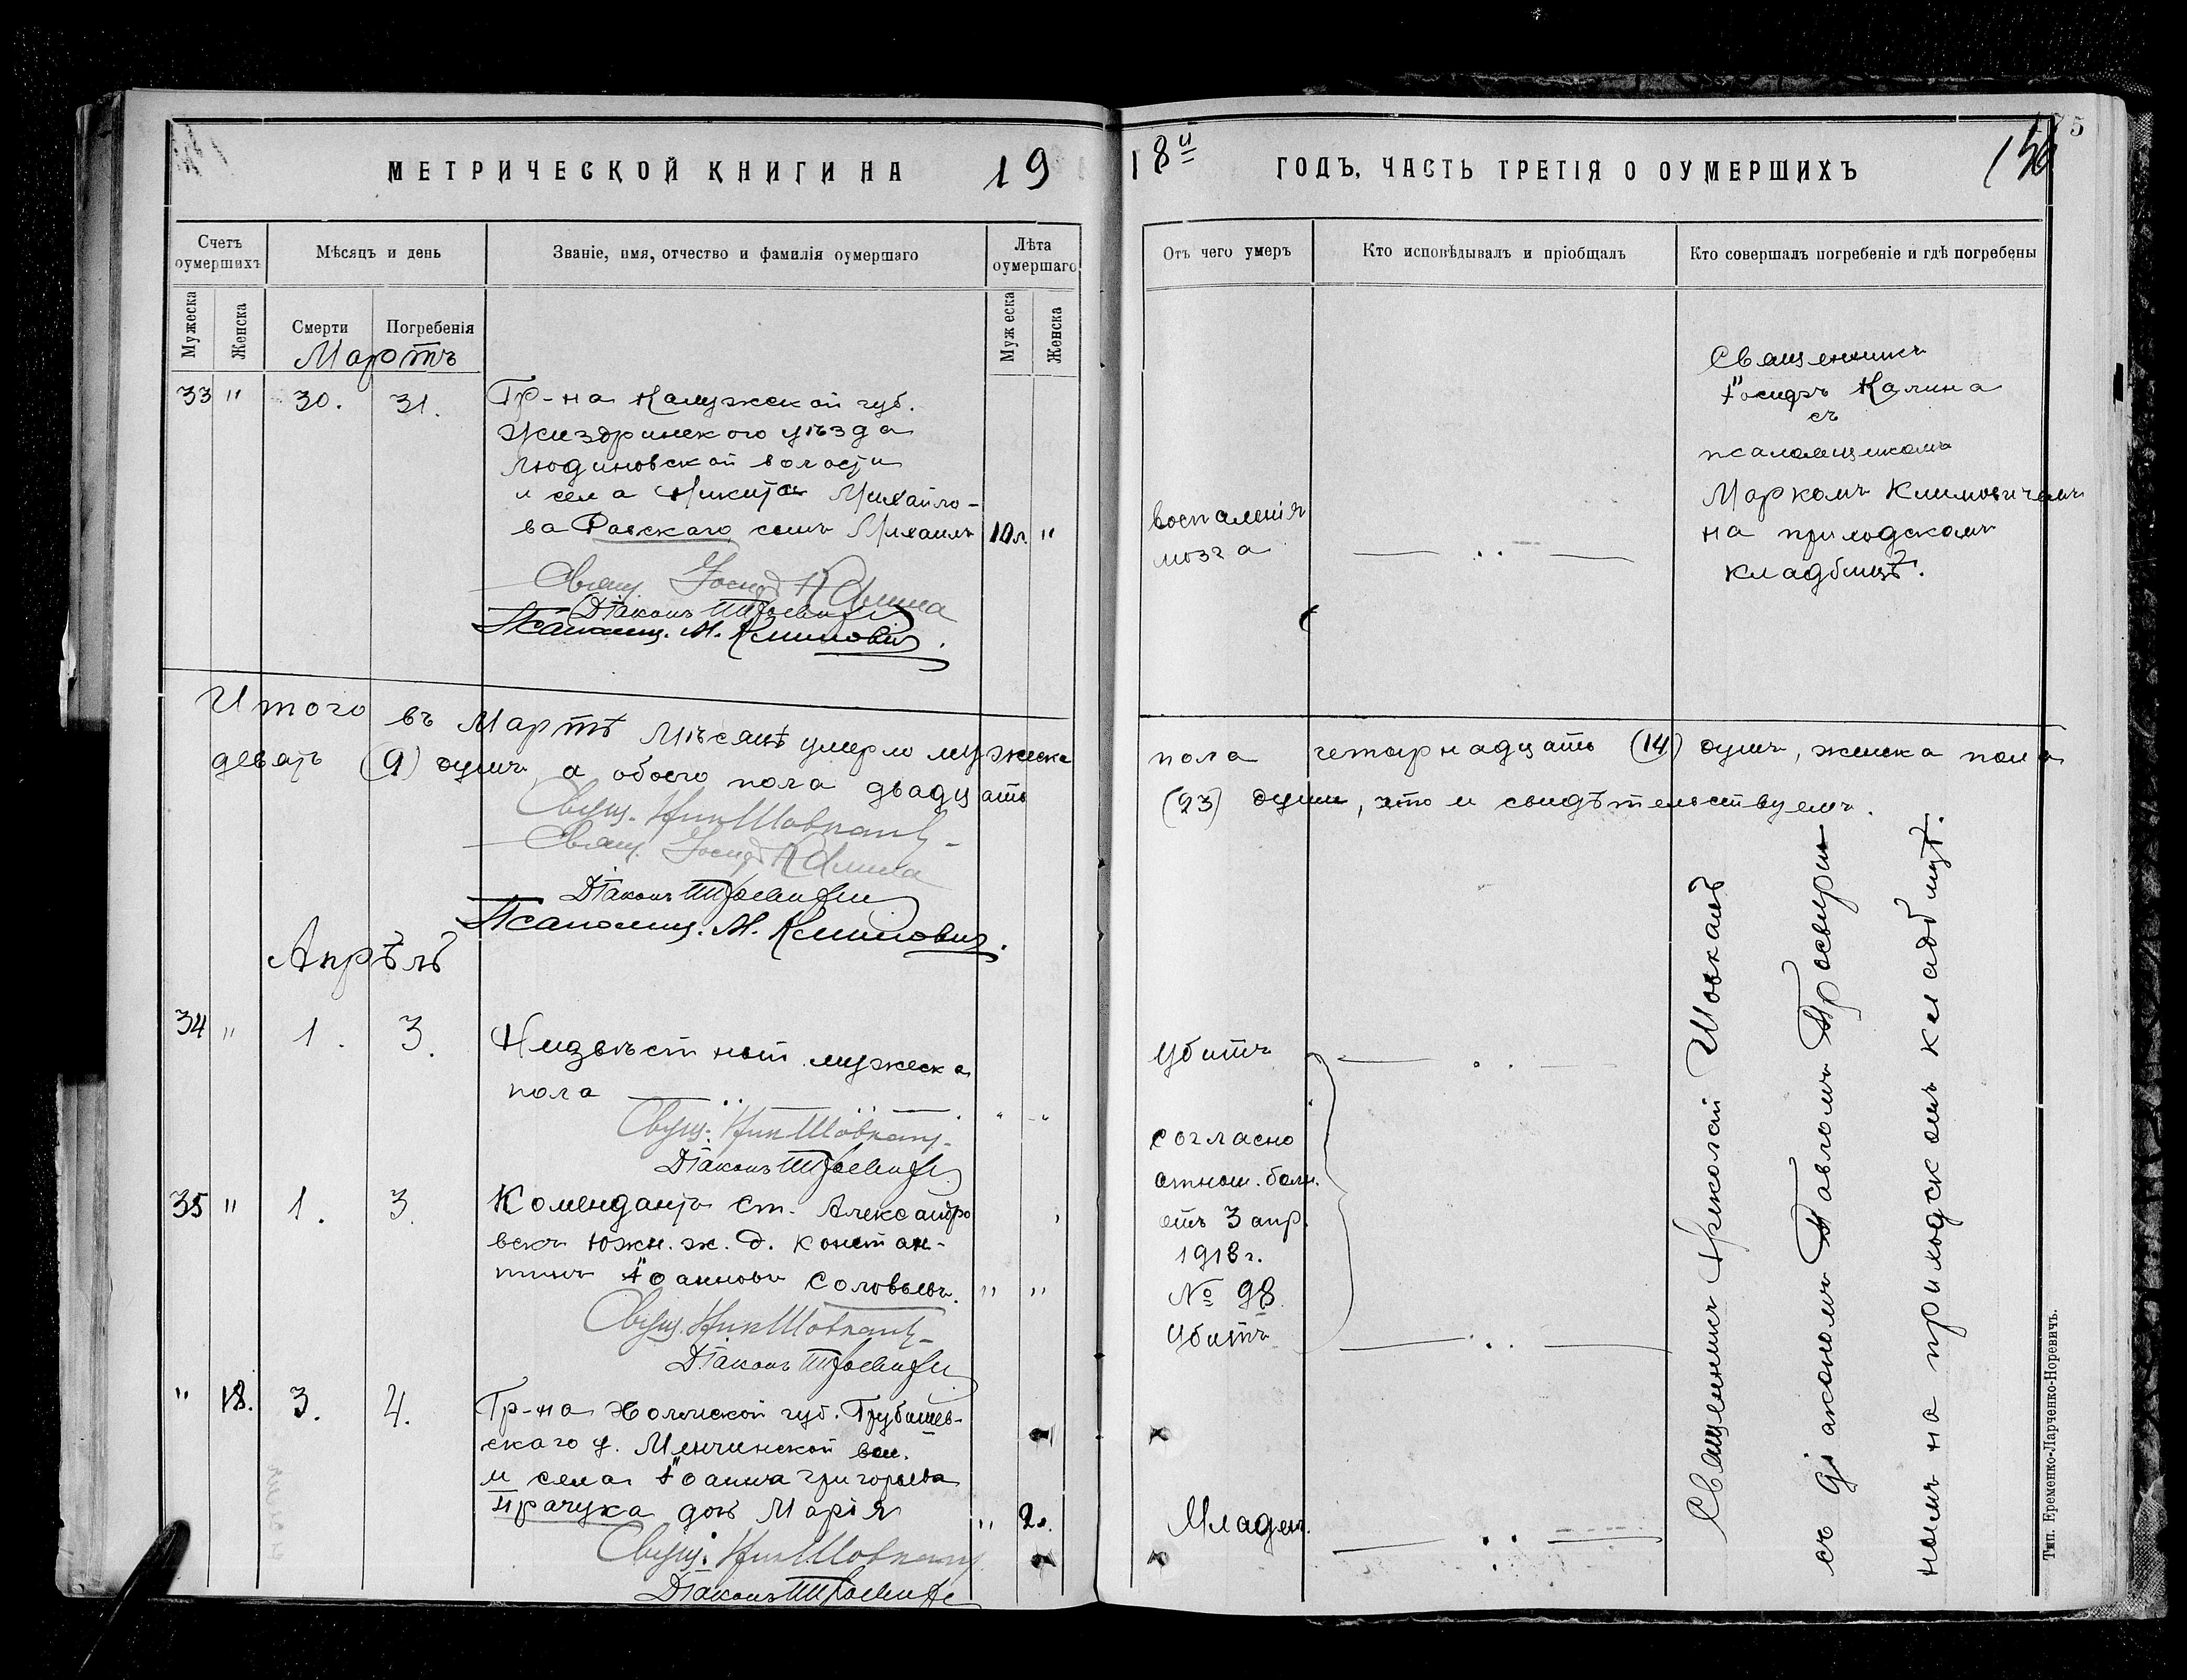 МЕТРИЧЕСКОЙ КНИГИ НА 19
Счетъ оумершихъ
Мѣсяцъ и день
Званіе, имя, отчество и фамилія оумершаго
Лѣта оумершаго
Мужеска
Женска
Смерти
Погребенія
Муж еска
Женска
Мартъ
33 " 30. 31.
Гр-на Калужской губ.
Жиздринскаго уѣзда
Людиновской волости
и села Никиты Михайло-
ва Раевскаго сынъ Михаилъ 10 л. "
Свящ. Іосифъ Калина
Діаконъ
Псаломщ. М. Климовичъ.
Итого въ Мартѣ мѣсяцѣ умерло мужеска
девять (9) душъ, а обоего пола двадцать
Свящ. Ник Шовкань
Свящ. Іосифъ Калина
Діаконъ
Псаломщ. М. Климовичъ.
Апрѣль
34 " 1. 3.
Неизвѣстный мужеска
пола
Свящ. Ник Шовкань
Діаконъ
35 " 1. 3.
Комендантъ ст. Александро
вскъ Южн. ж. д. Констан-
тинъ Іоанновъ Соловьевъ. " "
Свящ. Ник Шовкань
Діаконъ
" 18. 3. 4.
Гр-на Холмской губ. Грубешев-
скаго у. Менчинской вол.
и села Іоанна Григорьева
Прачука дочь Марія " 2 л.
Свящ. Ник Шовкань
Діаконъ
18й ГОДЪ, ЧАСТЬ ТРЕТІЯ О ОУМЕРШИХЪ
Отъ чего умеръ
Кто исповѣдывалъ и пріобщалъ
Кто совершалъ погребеніе и гдѣ погребены
воспаленія
мозга
Священникъ
Іосифъ Калина
съ
псаломщикомъ
Маркомъ Климовичемъ
на приходскомъ
кладбищѣ.
пола четырнадцать (14) душъ, женска пола
(23) души, что и свидѣтельствуемъ.
Убитъ
согласно
отнош. болн.
отъ 3 апр.
1918 г.
№ 98
Убитъ
Младен.
Священникъ Николай Шовкань
съ діакономъ Павломъ
на приходскомъ кладбищѣ.
Тип. Еременко-Ларченко-Норевичъ.